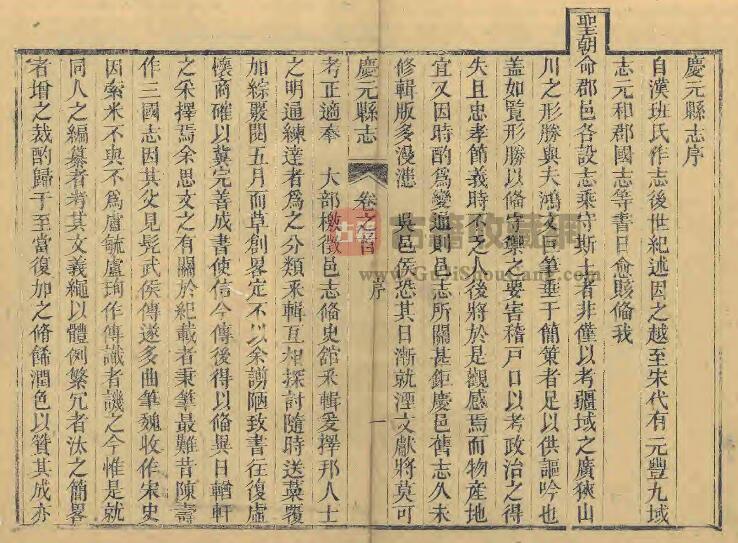 慶元縣志序
自漢班氏作志後世紀述因之越至宋代有元豐九域
志元和郡國志等書日愈賅備我
聖朝命郡邑各設志乘守斯土者非僅以考疆域之廣狹山
川之形勝與夫鴻文巨筆垂于簡策者足以供謳吟也
蓋如覽形勝以備守禦之要害稽戶口以考政治之得
失且忠孝節義時不乏人後將於是觀感焉而物産地
宜又因時酌爲變通則邑志所關甚鉅慶邑舊志久未
修輯版多漫漶 吳邑侯恐其日漸就湮文獻將莫可
慶元縣志 卷之首 序 一
考正適奉 大部檄徵邑志備史舘釆輯爰擇邦人士
之明通練達者爲之分類釆輯互相探討隨時送藁覆
加綜覈閱五月而草創畧定不以余謭陋致書往復虛
懷商確以冀完善成書使信今傳後得以備異日輶軒
之采擇焉余思文之有關於紀載者秉筆最難昔陳壽
作三國志因其父見髡武侯傳遂多曲筆魏收作宋史
因索米不與不爲盧毓盧珣作傳識者譏之今惟是就
同人之編纂者考其文義繩以體例繁冗者汰之簡畧
者增之裁酌歸于至當復加之脩餙潤色以贊其成亦
古籍收藏网
www.GuJiShouCang.com